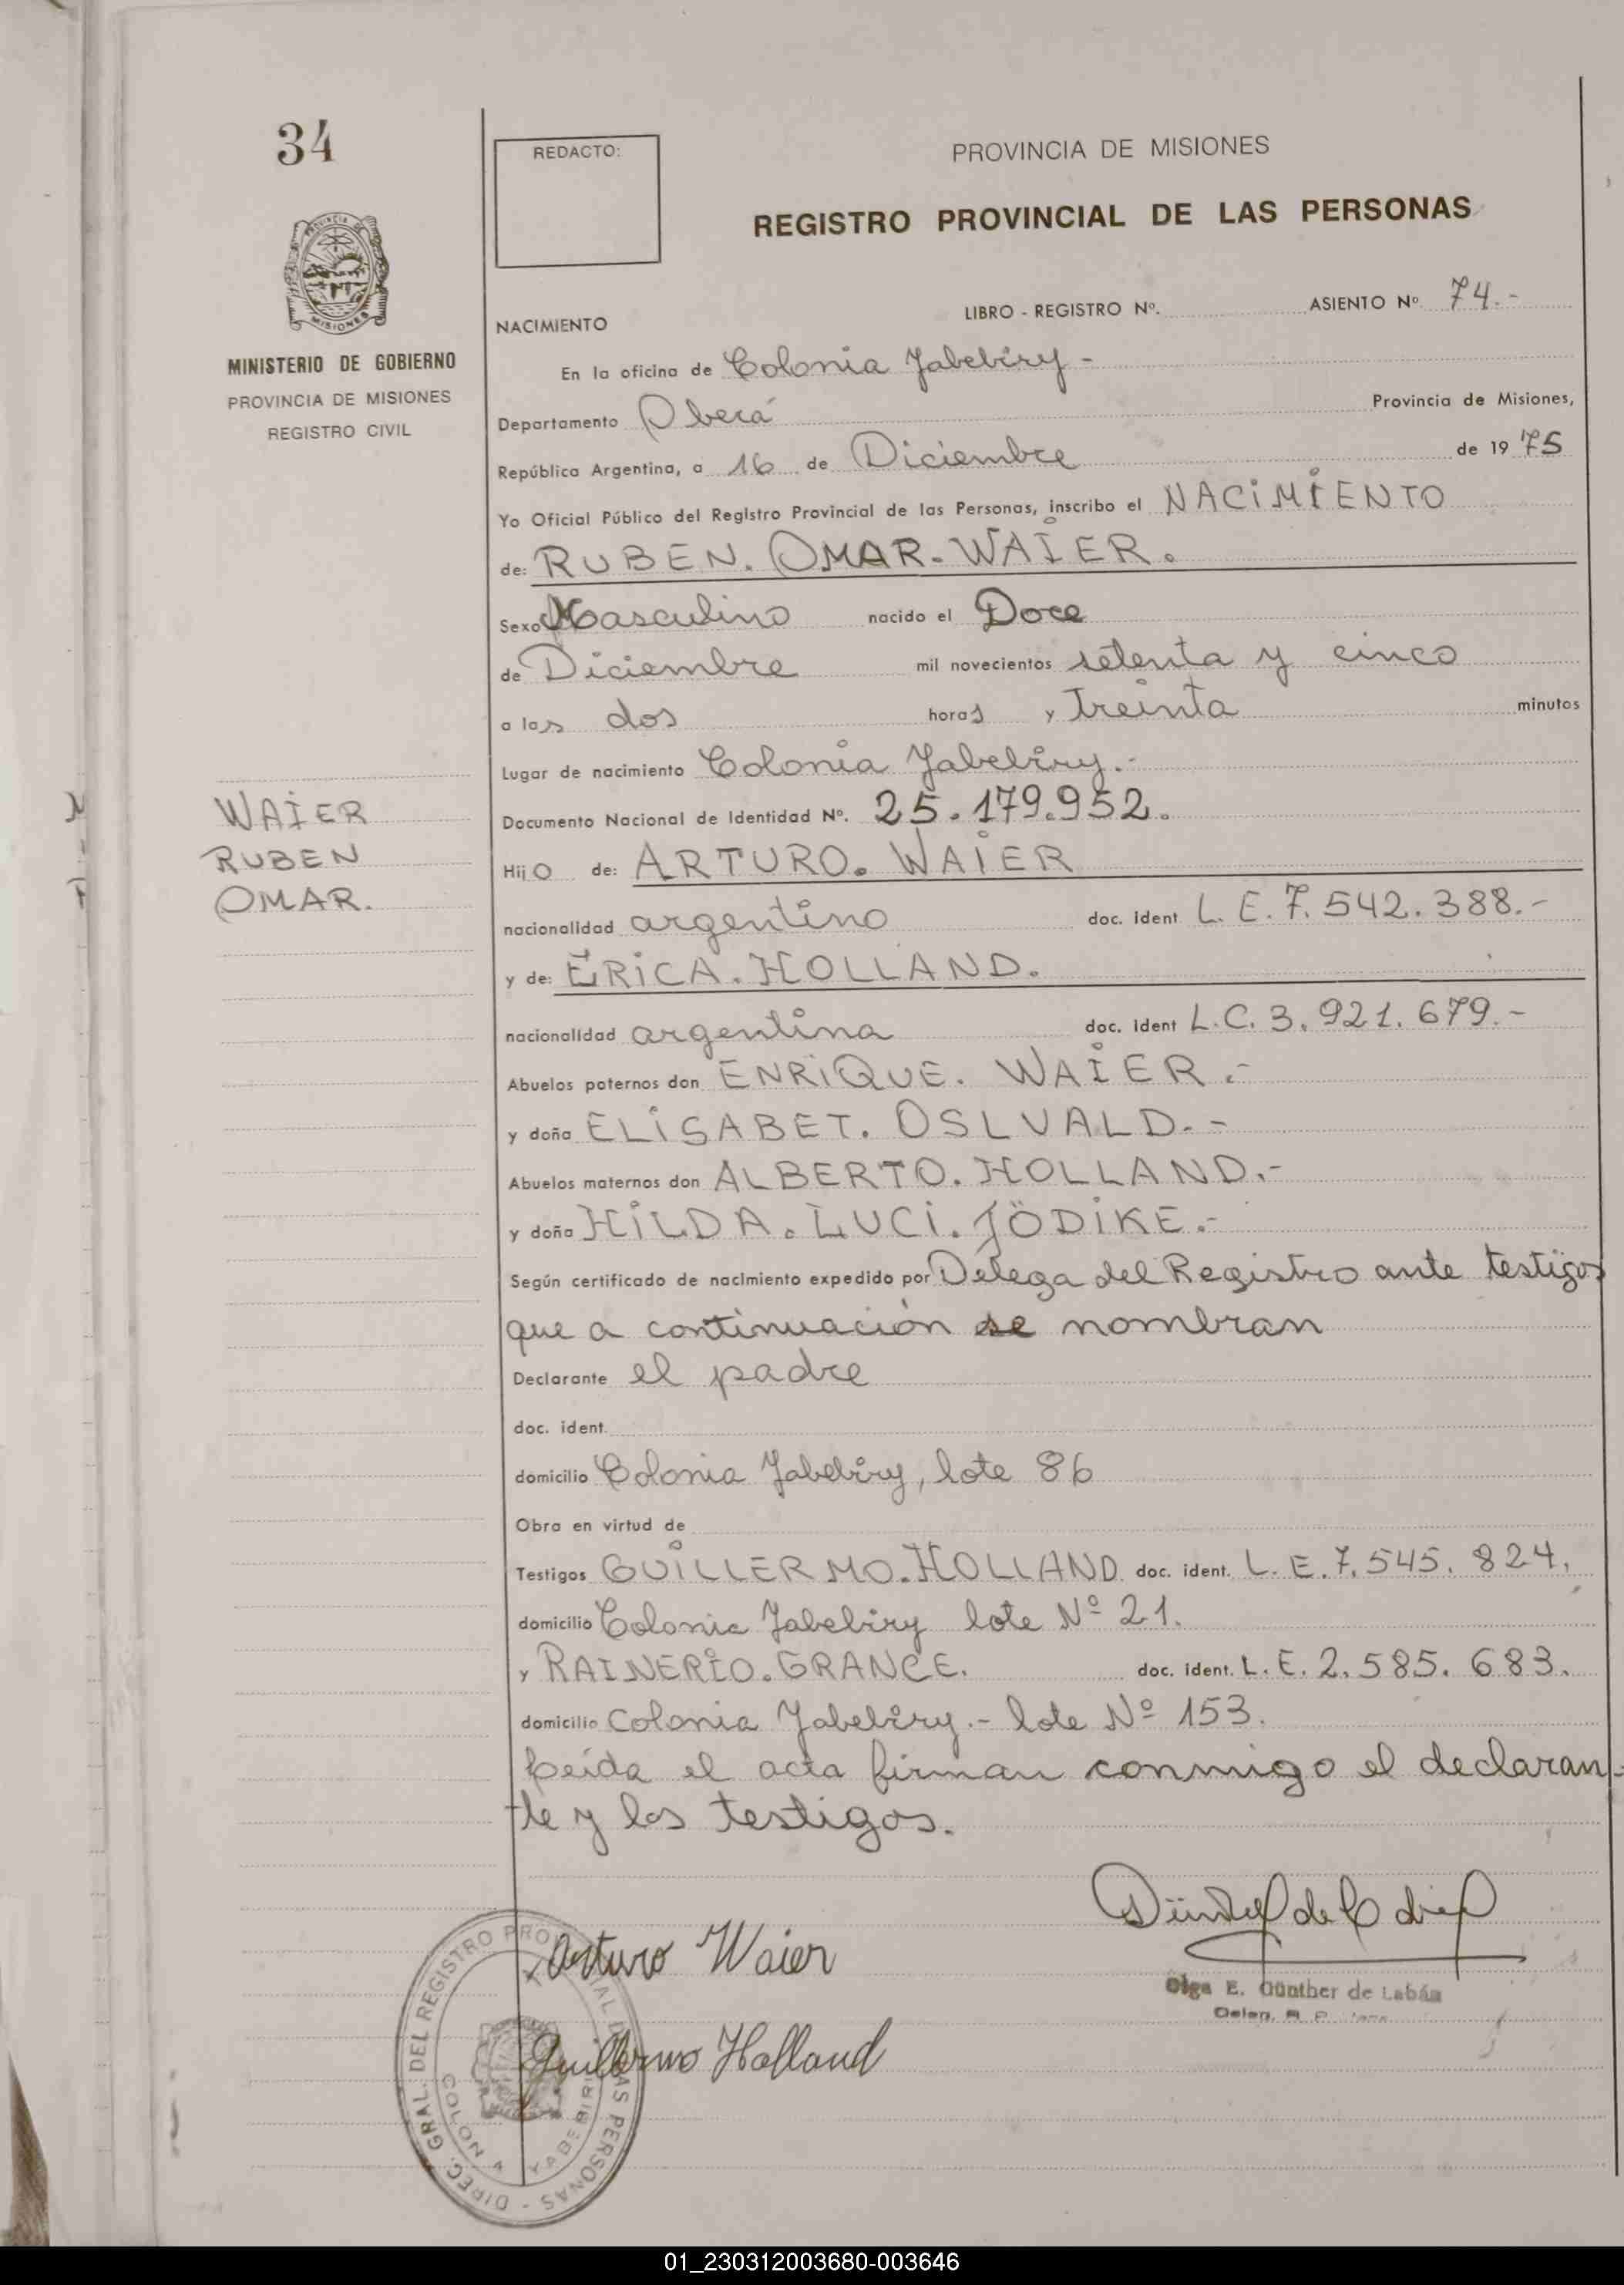 34
REDACTO:
PROVINCIA DE MISIONES
REGISTRO PROVINCIAL DE LAS PERSONAS
MISIONES
MINISTERIO DE GOBIERNO
PROVINCIA DE MISIONES
REGISTRO CIVIL
LIBRO - REGISTRO Nº. ASIENTO Nº 74.-
NACIMIENTO
En la oficina de Colonia Yabebiry -
Departamento Oberá Provincia de Misiones,
República Argentina, a 16 de Diciembre de 1975
Yo Oficial Público del Registro Provincial de las Personas, inscribo el NACIMIENTO
de: RUBEN. OMAR. WAIER.
Sexo Masculino nacido el Doce
de Diciembre mil novecientos setenta y cinco
a las dos horas y treinta minutos
Lugar de nacimiento Colonia Yabebiry.-
WAIER
RUBEN
OMAR.
Documento Nacional de Identidad Nº. 25.179.952.
Hijo de: ARTURO. WAIER
nacionalidad argentino doc. ident L. E. 7. 542. 388.-
y de: ERICA. HOLLAND.
nacionalidad argentina doc. ident L.C. 3. 921. 679.-
Abuelos paternos don ENRIQUE. WAIER.-
y doña ELISABET. OSLVALD.-
Abuelos maternos don ALBERTO. HOLLAND.-
y doña HILDA. LUCI. JÖDIKE.-
Según certificado de nacimiento expedido por Delega del Registro ante testigos
que a continuación se nombran
Declarante el padre
doc. ident.
domicilio Colonia Yabebiry, lote 86
Obra en virtud de
Testigos GUILLERMO. HOLLAND. doc. ident. L. E. 7. 545. 824.
domicilio Colonia Yabebiry lote Nº 21.
y RAINERIO. GRANCE. doc. ident. L. E. 2. 585. 683.
domicilio Colonia Yabebiry.- lote Nº 153.
Leída el acta firman conmigo el declaran-
te y los testigos.
Arturo Waier
Olga E. Günther de Labán
Guillermo Holland
DIREC. GRAL. DEL REGISTRO PROVINCIAL DE LAS PERSONAS -
COLONIA YABEBIRI
01_230312003680-003646